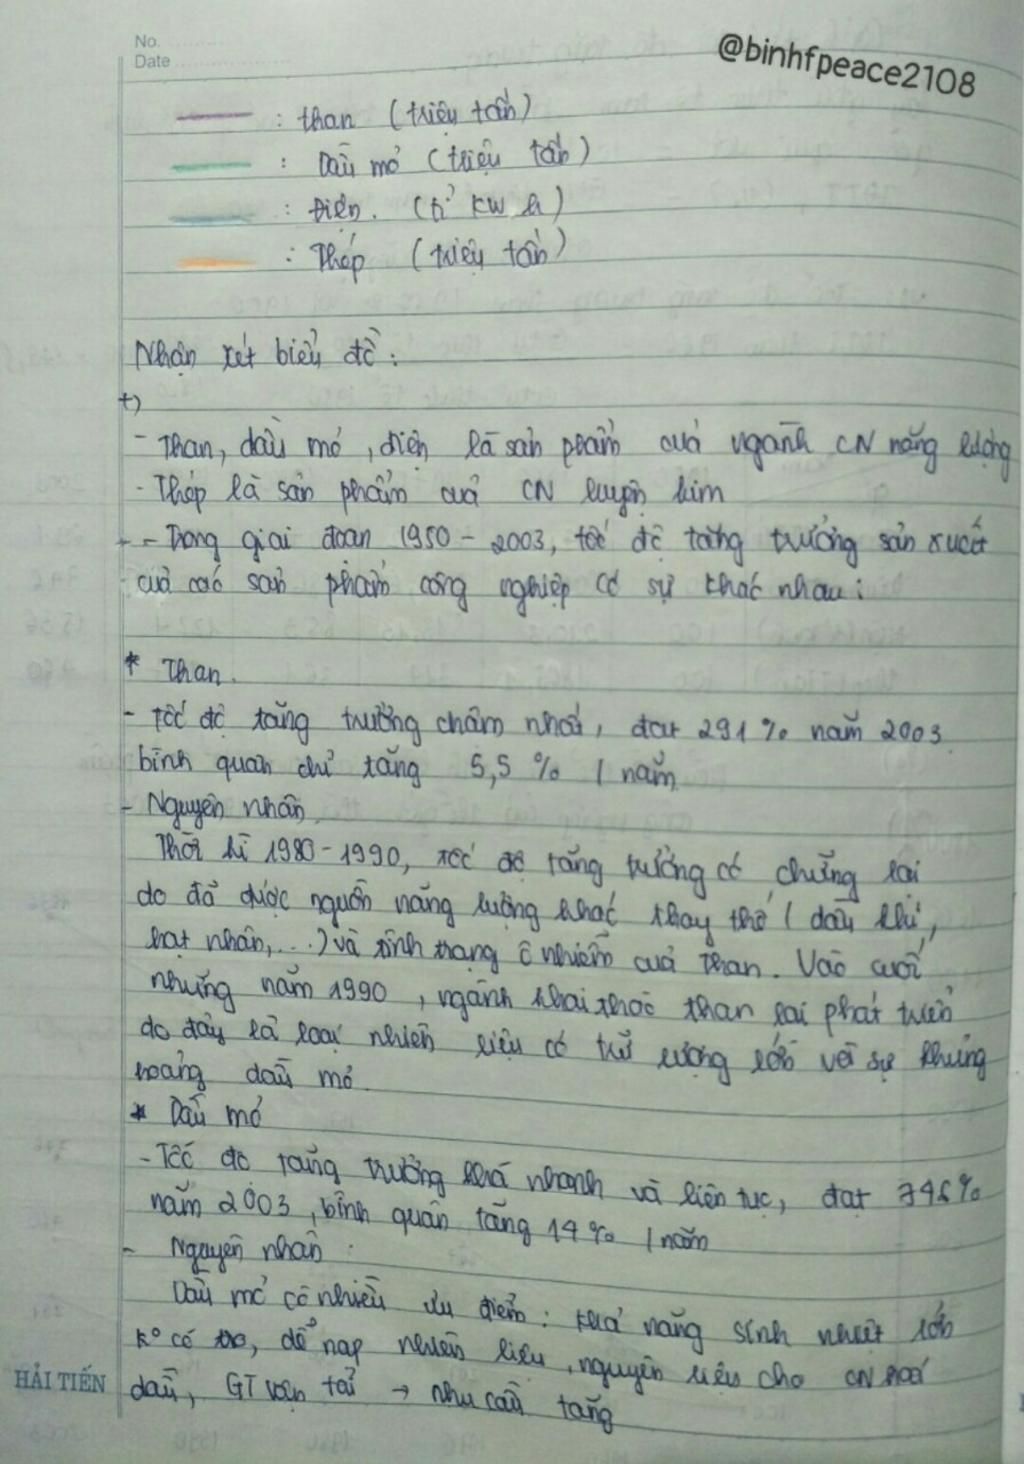 No.
Date
@binhfpeace2108
: than (triệu tấn)
: Dầu mỏ (triệu tấn)
: Điện. (tỉ kW h)
: Thép (triệu tấn)
Nhận xét biểu đồ:
+)
- Than, dầu mỏ, điện là sản phẩm của ngành CN năng lượng
- Thép là sản phẩm của CN luyện kim
- Trong giai đoạn 1950 - 2003, tốc độ tăng trưởng sản xuất
của các sản phẩm công nghiệp có sự khác nhau:
* Than.
- Tốc độ tăng trưởng chậm nhất, đạt 291% năm 2003
bình quân chỉ tăng 5,5 % / năm
- Nguyên nhân
Thời kì 1980-1990, tốc độ tăng trưởng có chững lại
do đã được nguồn năng lượng khác thay thế (dầu khí,
hạt nhân,...) và tình trạng ô nhiễm của than. Vào cuối
những năm 1990, ngành khai thác than lại phát triển
do đây là loại nhiên liệu có trữ lượng lớn với sự khủng
hoảng dầu mỏ.
* Dầu mỏ
- Tốc độ tăng trưởng khá nhanh và liên tục, đạt 746%
năm 2003, bình quân tăng 14% / năm
- Nguyên nhân:
Dầu mỏ có nhiều ưu điểm: khả năng sinh nhiệt lớn
k° có tro, dễ nạp nhiên liệu, nguyên liệu cho CN hoá
dầu, GT vận tải → nhu cầu tăng
HẢI TIẾN